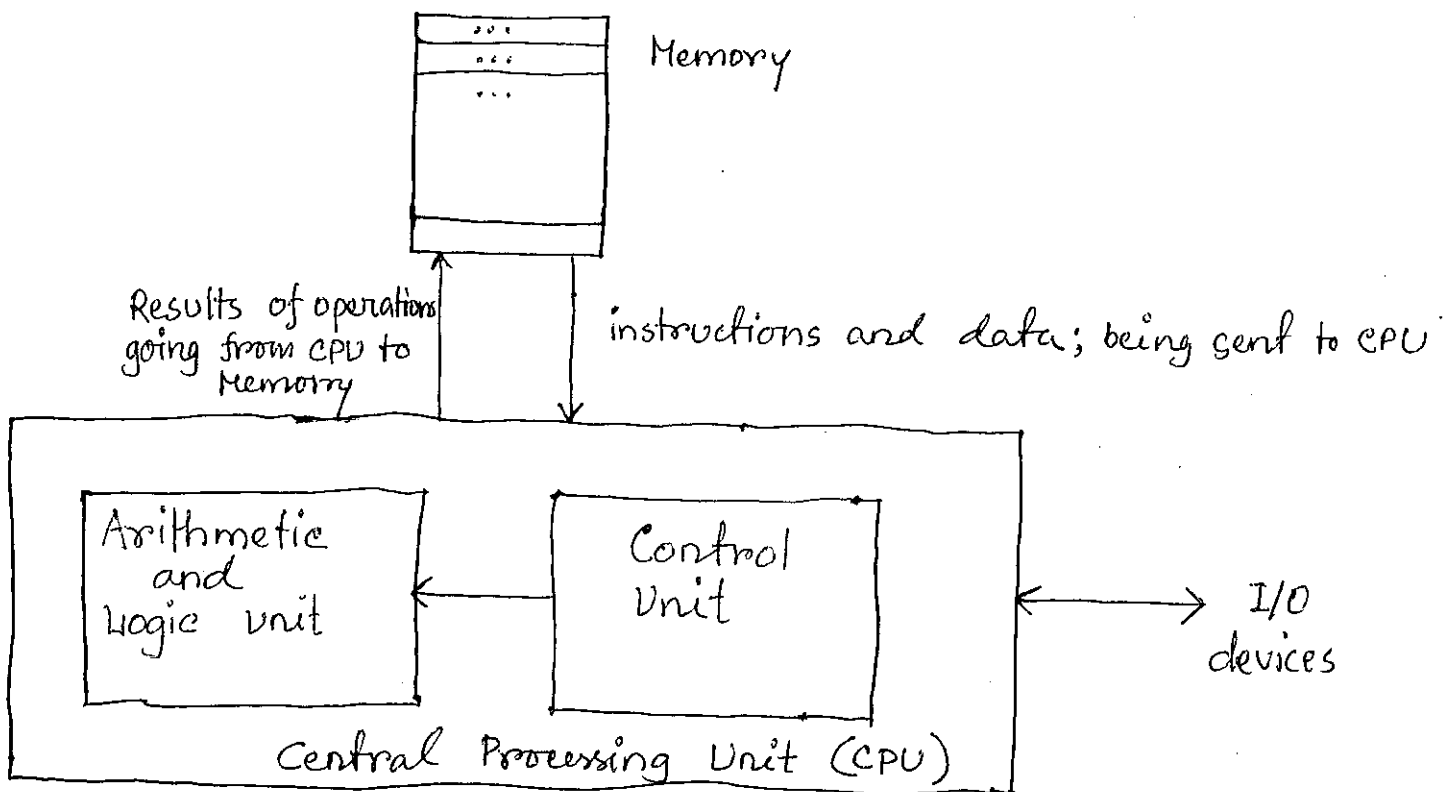 Memory
Results of operations
going from CPU to
Memory
instructions and data; being sent to CPU
Arithmetic
and
Logic unit
Control
Unit
I/O
devices
Central Processing Unit (CPU)